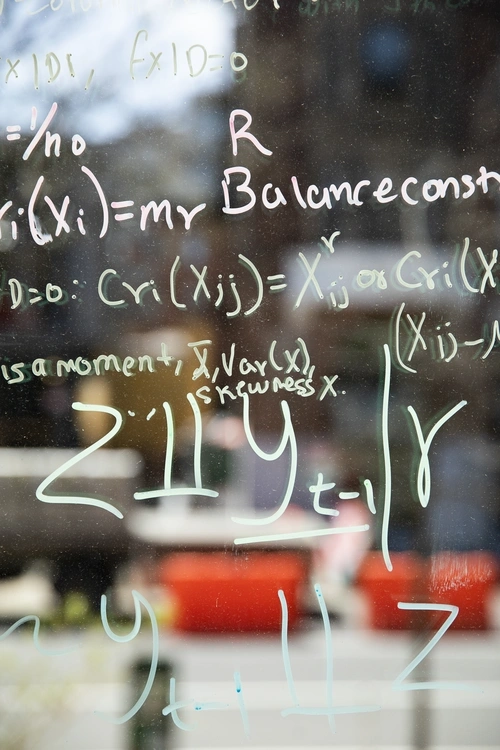 x|D1, fx|D=0
=1/n0 R
ri(Xi)=mr Balanceconst
D=0: Cri(Xij)=X^r_ij or Cri(X
(Xij-
is a moment, X̄, Var(X),
skewness x.
Z ⫫ y_t-1 | r
~ y_t-1 ⫫ Z